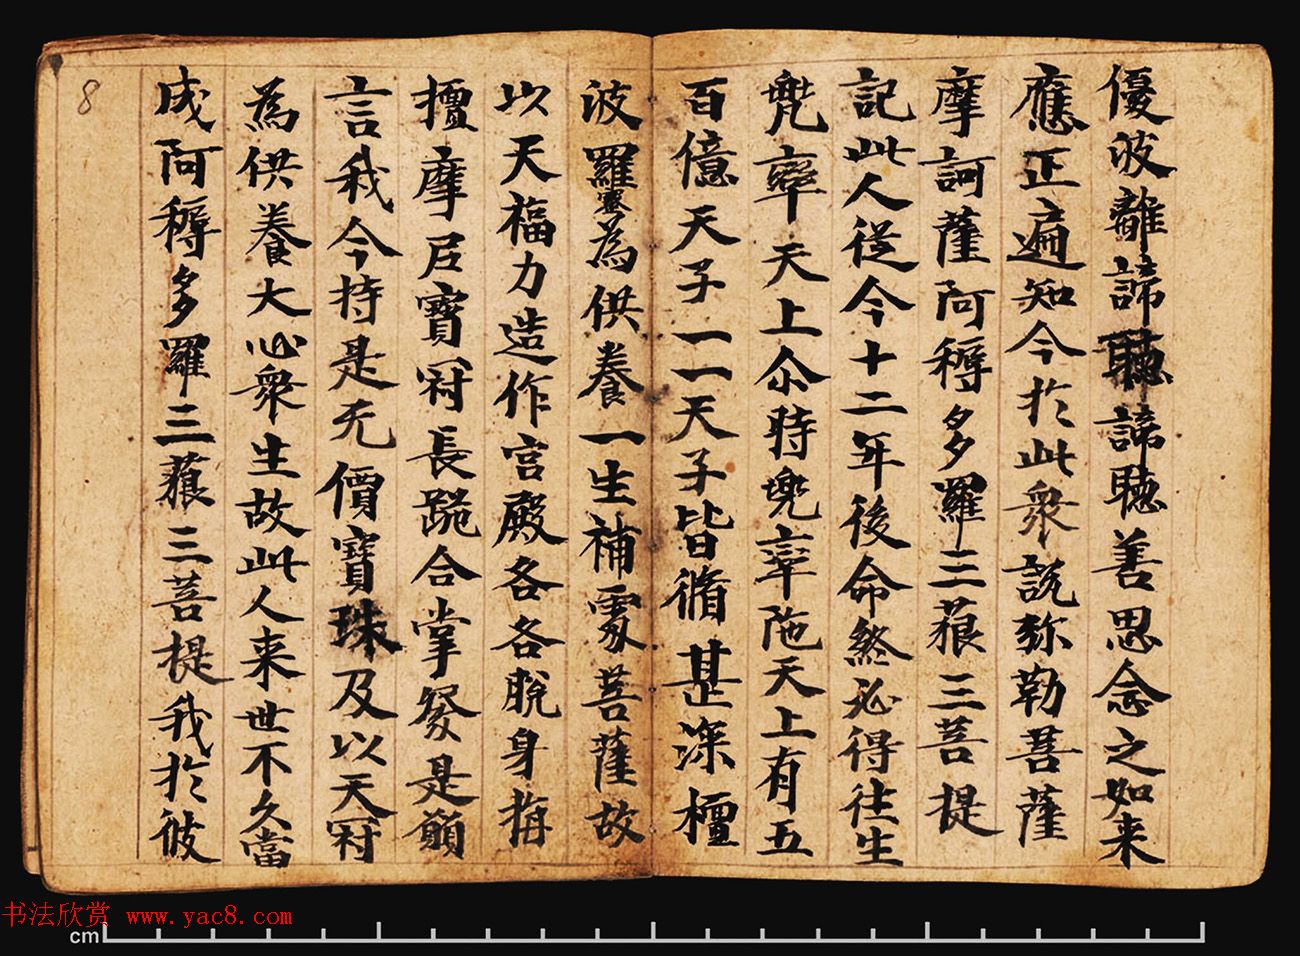 優波離諦聽諦聽善思念之如来
應正遍知今於此衆說弥勒菩薩
摩訶薩阿耨多羅三藐三菩提
記此人從今十二年後命終必得往生
兠率天上尒時兠率陁天上有五
百億天子一一天子皆脩甚深檀
波羅蜜為供養一生補處菩薩故
以天福力造作宫殿各各脫身栴
檀摩尼寶冠長跪合掌發是願
言我今持是无價寶珠及以天冠
為供養大心衆生故此人来世不久當
成阿耨多羅三藐三菩提我於彼
8
书法欣赏 www.yac8.com
cm